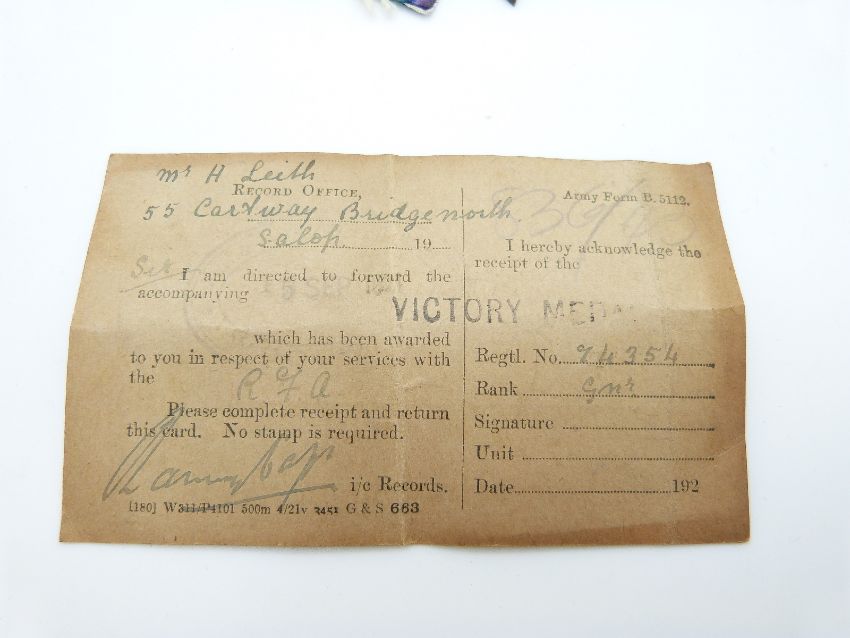 Mr H Leith
RECORD OFFICE,
55 Cartway Bridgenorth
Salop 19
Sir I am directed to forward the
accompanying
VICTORY MEDAL
which has been awarded
to you in respect of your services with
the
R F A
Please complete receipt and return
this card. No stamp is required.
i/c Records.
[180] W311/P4101 500m 4/21v 3451 G & S 663
Army Form B. 5112.
I hereby acknowledge the
receipt of the
Regtl. No. 74354
Rank Gnr
Signature
Unit
Date 192